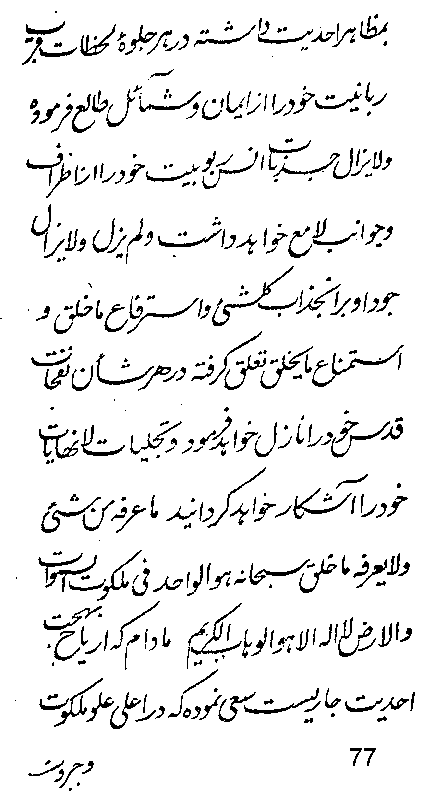 بمظاهر احدیت داشته در هر جلوهٔ لحظات قرب
ربانیت خود را از ایمان و شمائل طالع فرموده
ولایزال جذبات انس ربوبیت خود را از اطراف
و جوانب لامع خواهد داشت ولم یزل ولایزال
جود او بر انجذاب کلشئ و استرفاع ماخلق و
استمناع مایخلق تعلق گرفته در هر شأن نفحات
قدس خود را نازل خواهد فرمود و تجلیات لانهایات
خود را آشکار خواهد گردانید ماعرفه من شئ
ولایعرفه ماخلق سبحانه هوالواحد فی ملکوت السموات
والارض لااله الا هو الوهاب الکریم مادام که اریاح بهجت
احدیت جاریست سعی نموده که در اعلی علو ملکوت
77
و جبروت